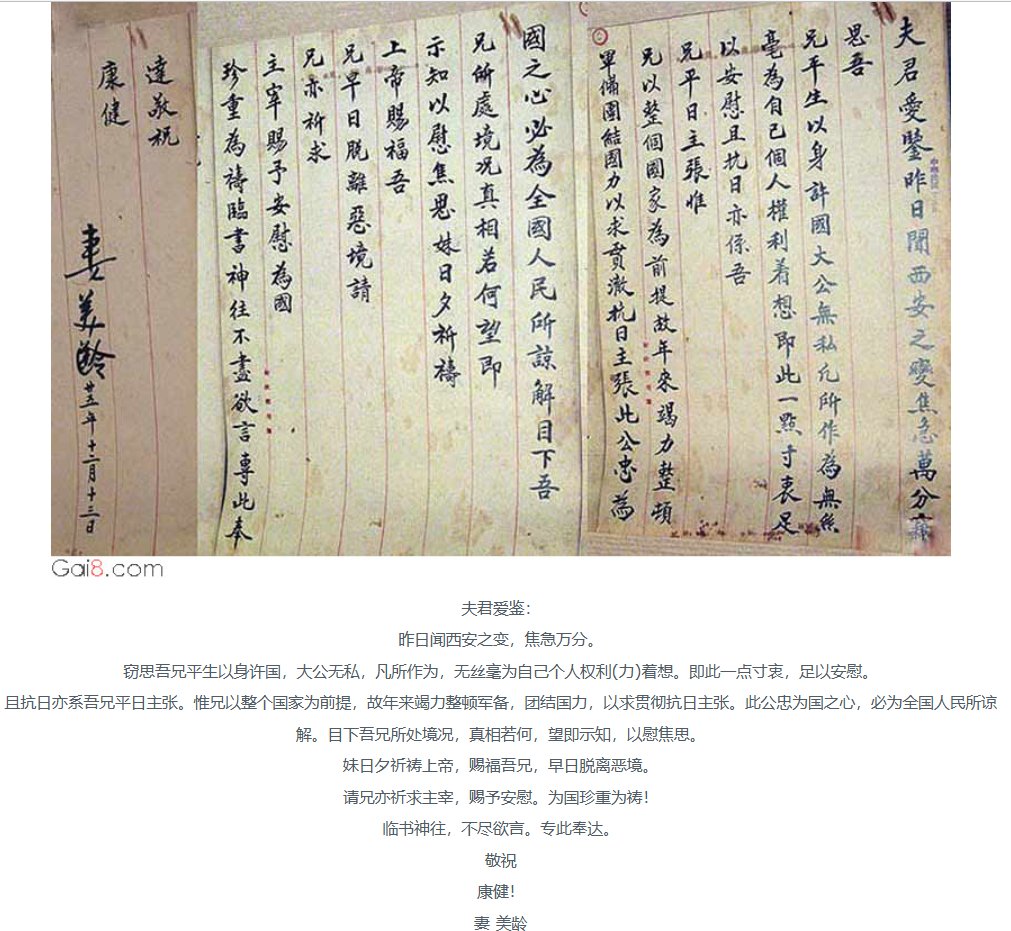 夫君愛鑒昨日聞西安之變焦急萬分竊
思吾
兄平生以身許國大公無私凡所作為無絲
毫為自己個人權利着想即此一點寸衷足
以安慰且抗日亦係吾
兄平日主張惟
兄以整個國家為前提故年來竭力整頓
軍備團結國力以求貫澈抗日主張此公忠為
國之心必為全國人民所諒解目下吾
兄所處境况真相若何望即
示知以慰焦思妹日夕祈禱
上帝賜福吾
兄早日脫離惡境請
兄亦祈求
主宰賜予安慰為國
珍重為禱臨書神往不盡欲言專此奉
達敬祝
康健
妻 美齡 廿五年十二月十三日
Gai8.com
夫君爱鉴：
昨日闻西安之变，焦急万分。
窃思吾兄平生以身许国，大公无私，凡所作为，无丝毫为自己个人权利(力)着想。即此一点寸衷，足以安慰。
且抗日亦系吾兄平日主张。惟兄以整个国家为前提，故年来竭力整顿军备，团结国力，以求贯彻抗日主张。此公忠为国之心，必为全国人民所谅
解。目下吾兄所处境况，真相若何，望即示知，以慰焦思。
妹日夕祈祷上帝，赐福吾兄，早日脱离恶境。
请兄亦祈求主宰，赐予安慰。为国珍重为祷！
临书神往，不尽欲言。专此奉达。
敬祝
康健！
妻 美龄